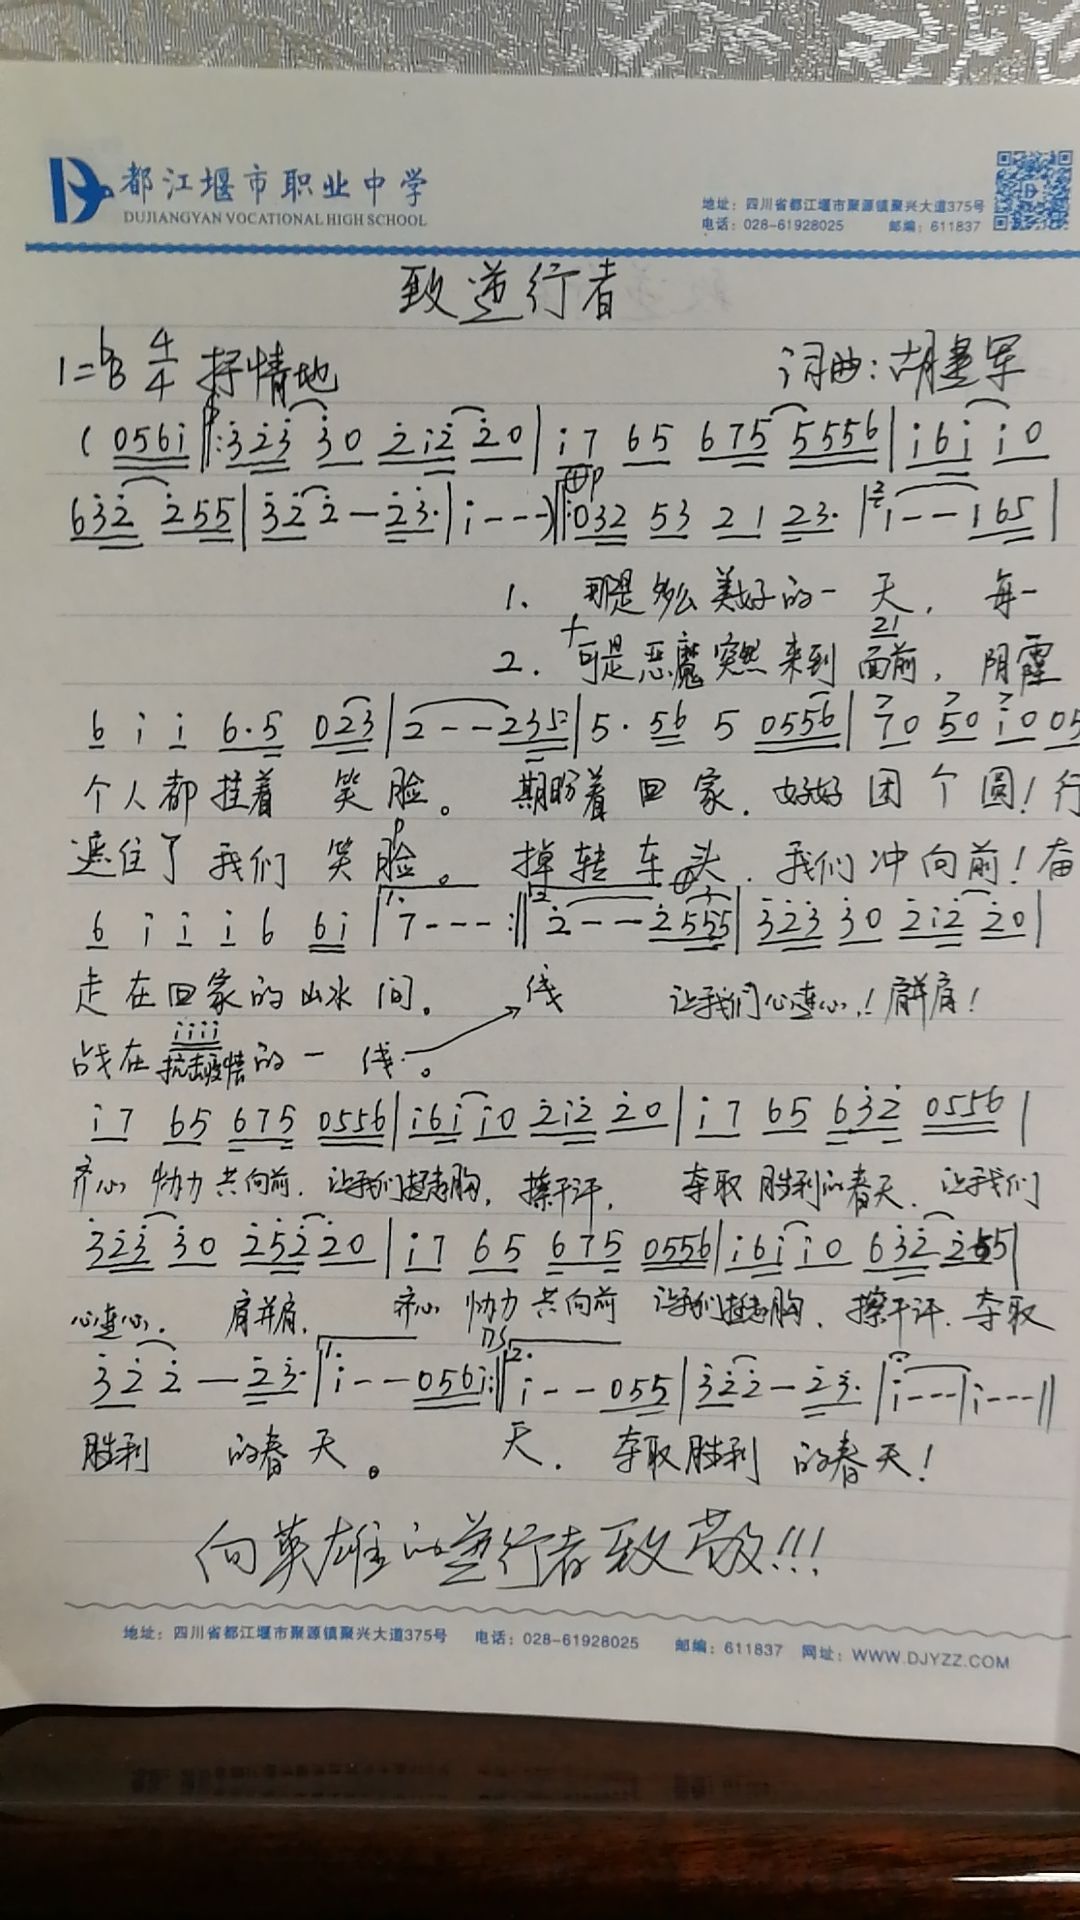 都江堰市职业中学
DUJIANGYAN VOCATIONAL HIGH SCHOOL
地址：四川省都江堰市聚源镇聚兴大道375号
电话：028-61928025 邮编：611837
致逆行者
1=bB 4/4 抒情地 词曲：胡
( 056i ‖: 323 30 212 20 | i7 65 675 5556 | i6i i0
632 255 | 322 — 23· | i - - - ) ‖: 032 53 21 23· | i - - 165 |
1. 那是多么美好的一天， 每一
21
2. 可是恶魔突然来到面前，阴霾
6 i i 6·5 023 | 2 - - 235 | 5· 56 5 0556 | 70 50 i0 05
个人都挂着 笑脸。 期盼着回家，好好团个圆！行
遮住了我们 笑脸。 掉转车头，我们冲向前！奋
6 i i i 6 6i | 1. 7 - - - :‖ 2. 2 - - 2555 | 323 30 212 20 |
走在回家的山水间。 线 让我们心连心！肩并肩！
iiii
战在抗击疫情的一 线。
i7 65 675 0556 | i6i i0 212 20 | i7 65 632 0556 |
齐心协力共向前，让我们挺起胸，擦干汗， 夺取胜利的春天，让我们
323 30 252 20 | i7 65 675 0556 | i6i i0 632 255 |
心连心，肩并肩， 齐心协力共向前 让我们挺起胸，擦干汗，夺取
322 — 23· | 1. i - - 056i :‖ 2. i - - 055 | 322 — 23· | i - - - | i - - - ‖
胜利 的春天。 天，夺取胜利 的春天！
向英雄的逆行者致敬!!!
地址：四川省都江堰市聚源镇聚兴大道375号 电话：028-61928025 邮编：611837 网址：WWW.DJYZZ.COM